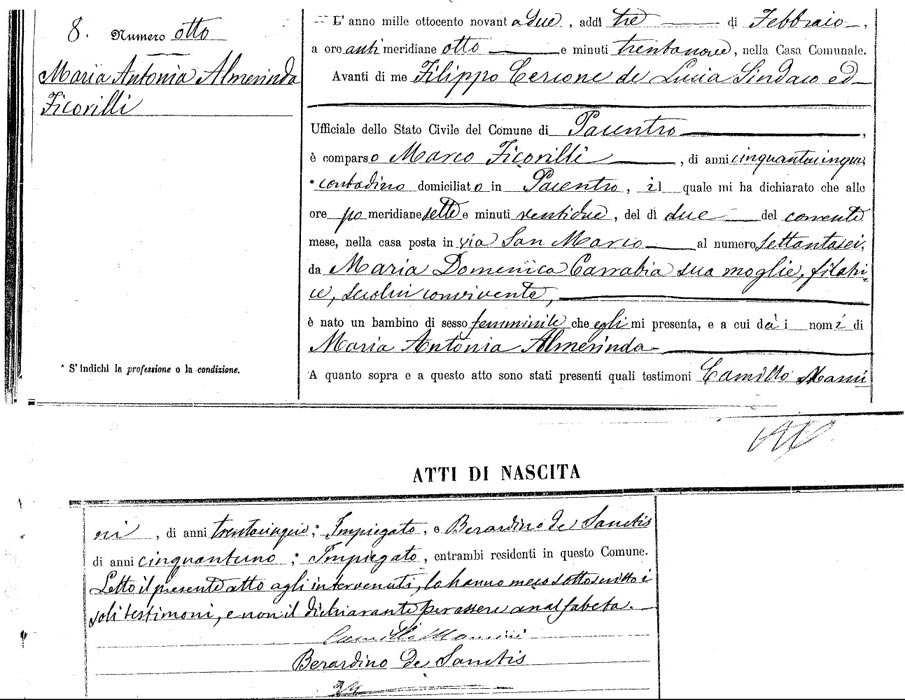 8. Numero otto
Maria Antonia Almerinda
Ficorilli
* S'indichi la professione o la condizione.
L'anno mille ottocento novantadue, addì tre di Febbraio,
a ore antimeridiane otto e minuti trentanove, nella Casa Comunale.
Avanti di me Filippo Cercone de Lucia Sindaco ed
Ufficiale dello Stato Civile del Comune di Pacentro,
è comparso Marco Ficorilli, di anni cinquantacinque,
* contadino domiciliato in Pacentro, il quale mi ha dichiarato che alle
ore pomeridiane sette e minuti ventidue, del dì due del corrente
mese, nella casa posta in via San Marco al numero settantasei,
da Maria Domenica Carrabia sua moglie, filatri-
ce, secolui convivente,
è nato un bambino di sesso femminile che egli mi presenta, e a cui dà i nomi di
Maria Antonia Almerinda
A quanto sopra e a questo atto sono stati presenti quali testimoni Camillo Manci
ATTI DI NASCITA
ni, di anni trentacinque; Impiegato, e Berardino de Sanctis
di anni cinquantuno; Impiegato, entrambi residenti in questo Comune.
Letto il presente atto agli intervenuti, lo hanno meco sottoscritto i
soli testimoni, e non il dichiarante per essere analfabeta.
Camillo Mancini
Berardino de Sanctis